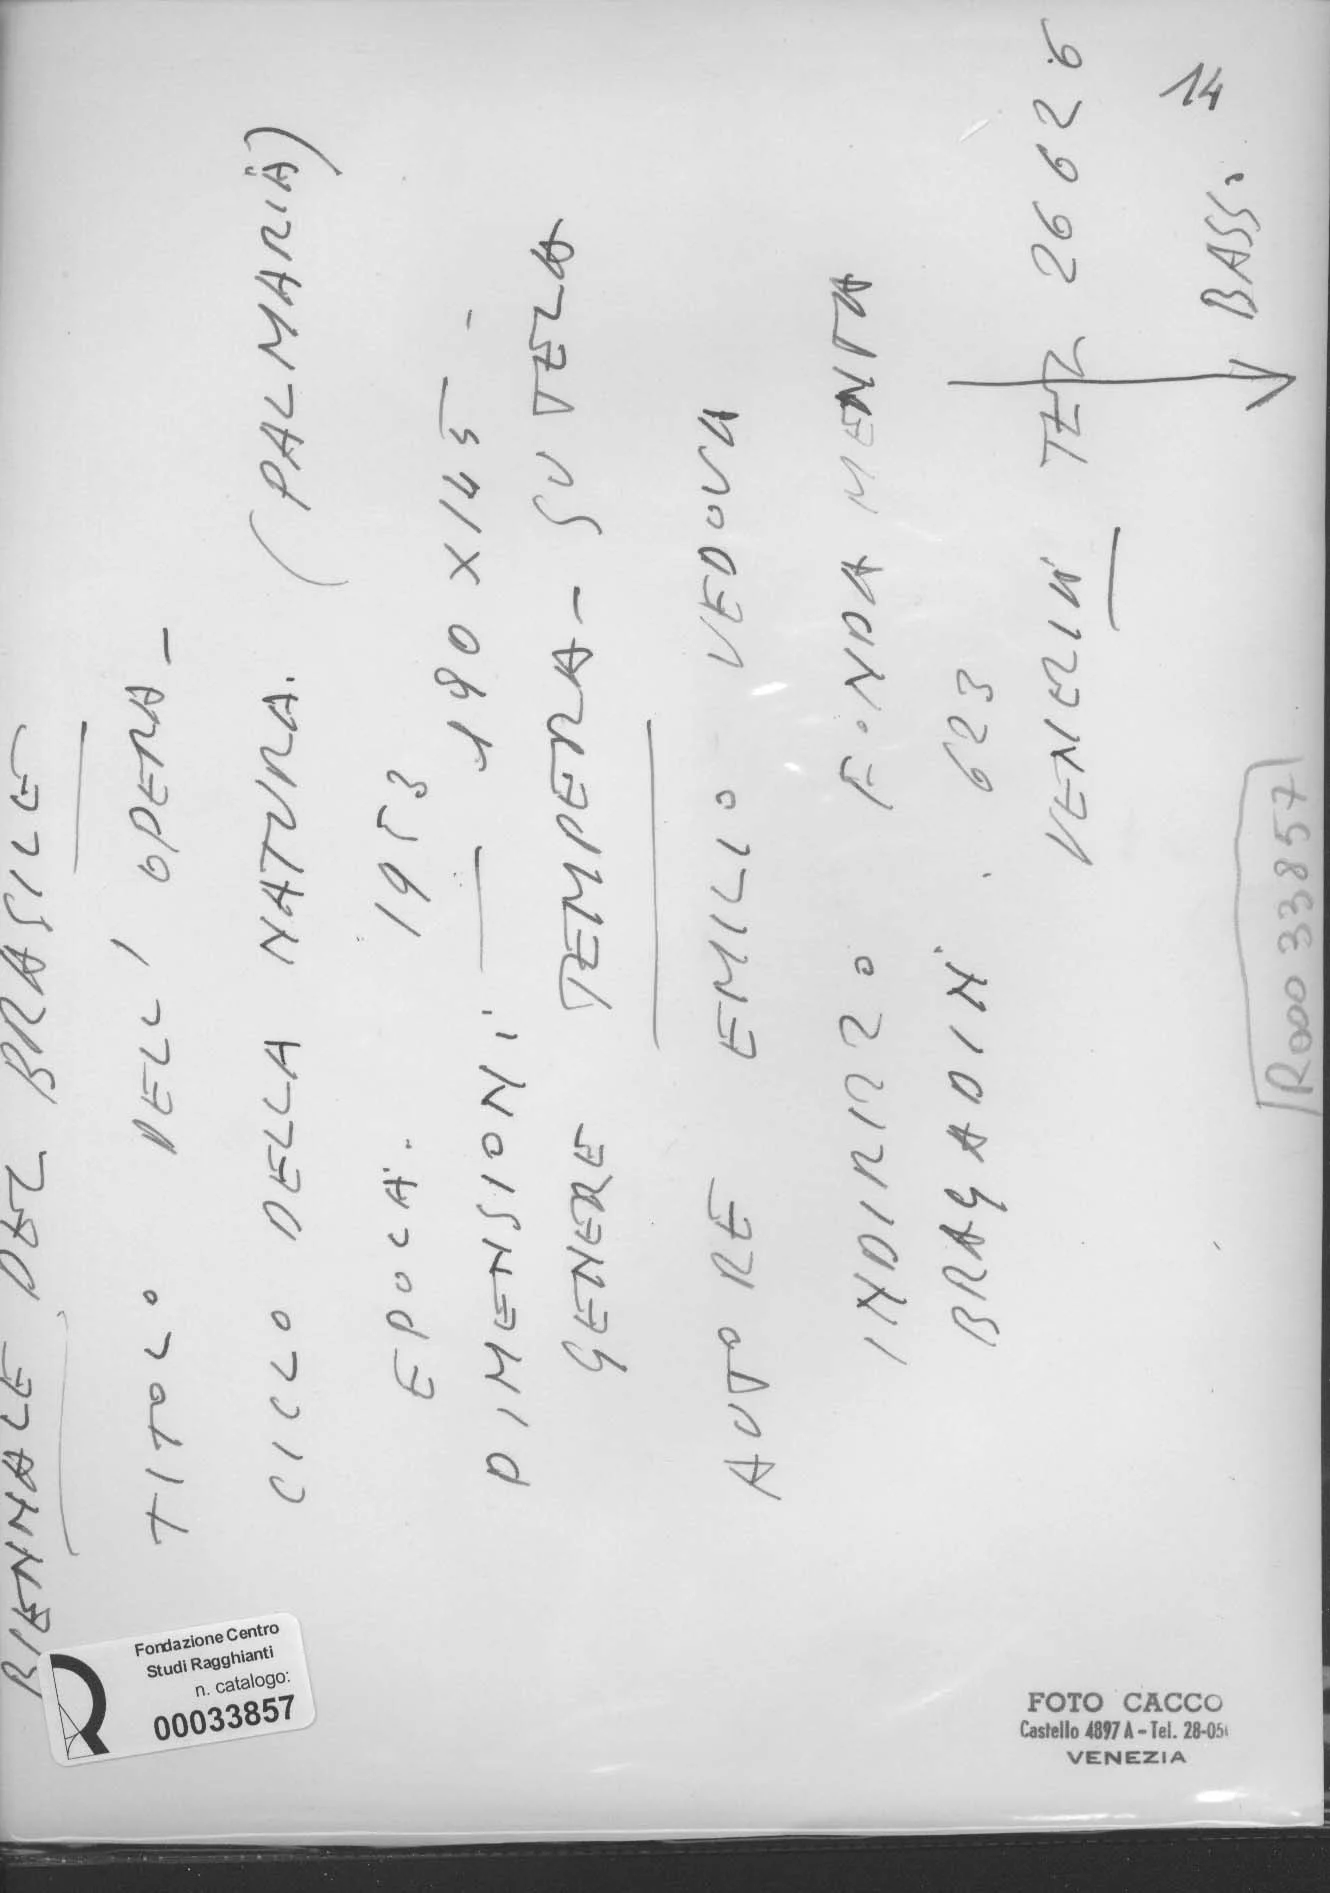 BIENNALE DEL BRASILE
TITOLO DELL'OPERA -
CICLO DELLA NATURA. (PALMARIA)
EPOCA. 1953
DIMENSIONI 190 X 145 -
GENERE TEMPERA - SU TELA
AUTORE EMILIO VEDOVA
INDIRIZZO FONDAMENTA
BRAGADIN 623
VENEZIA TEL 26626
BASS.
14
R00033857
Fondazione Centro
Studi Ragghianti
n. catalogo:
00033857
FOTO CACCO
Castello 4897 A - Tel. 28-05
VENEZIA